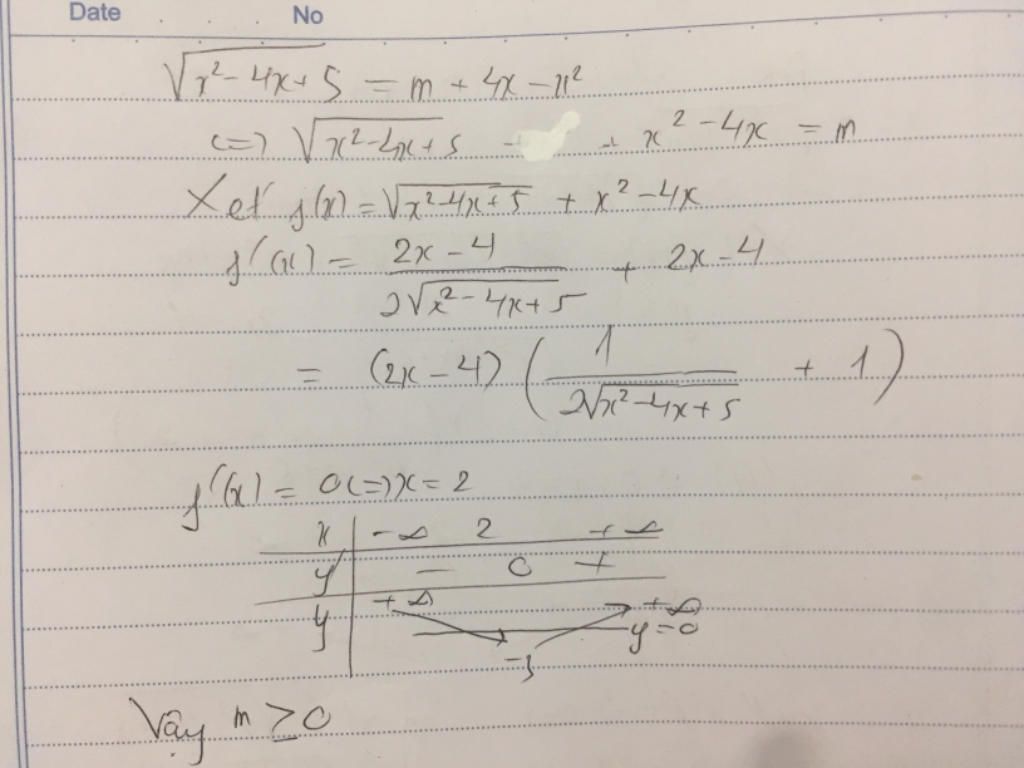 Date No
√(x² - 4x + 5) = m + 4x - x²
<=> √(x² - 4x + 5) + x² - 4x = m
Xet f(x) = √(x² - 4x + 5) + x² - 4x
f'(x) = (2x - 4) / (2√(x² - 4x + 5)) + 2x - 4
= (2x - 4) (1 / (2√(x² - 4x + 5)) + 1)
f'(x) = 0 <=> x = 2
x | -∞ 2 +∞
y' | - 0 +
y | +∞ +∞
y = 0
-3
Vậy m ≥ 0